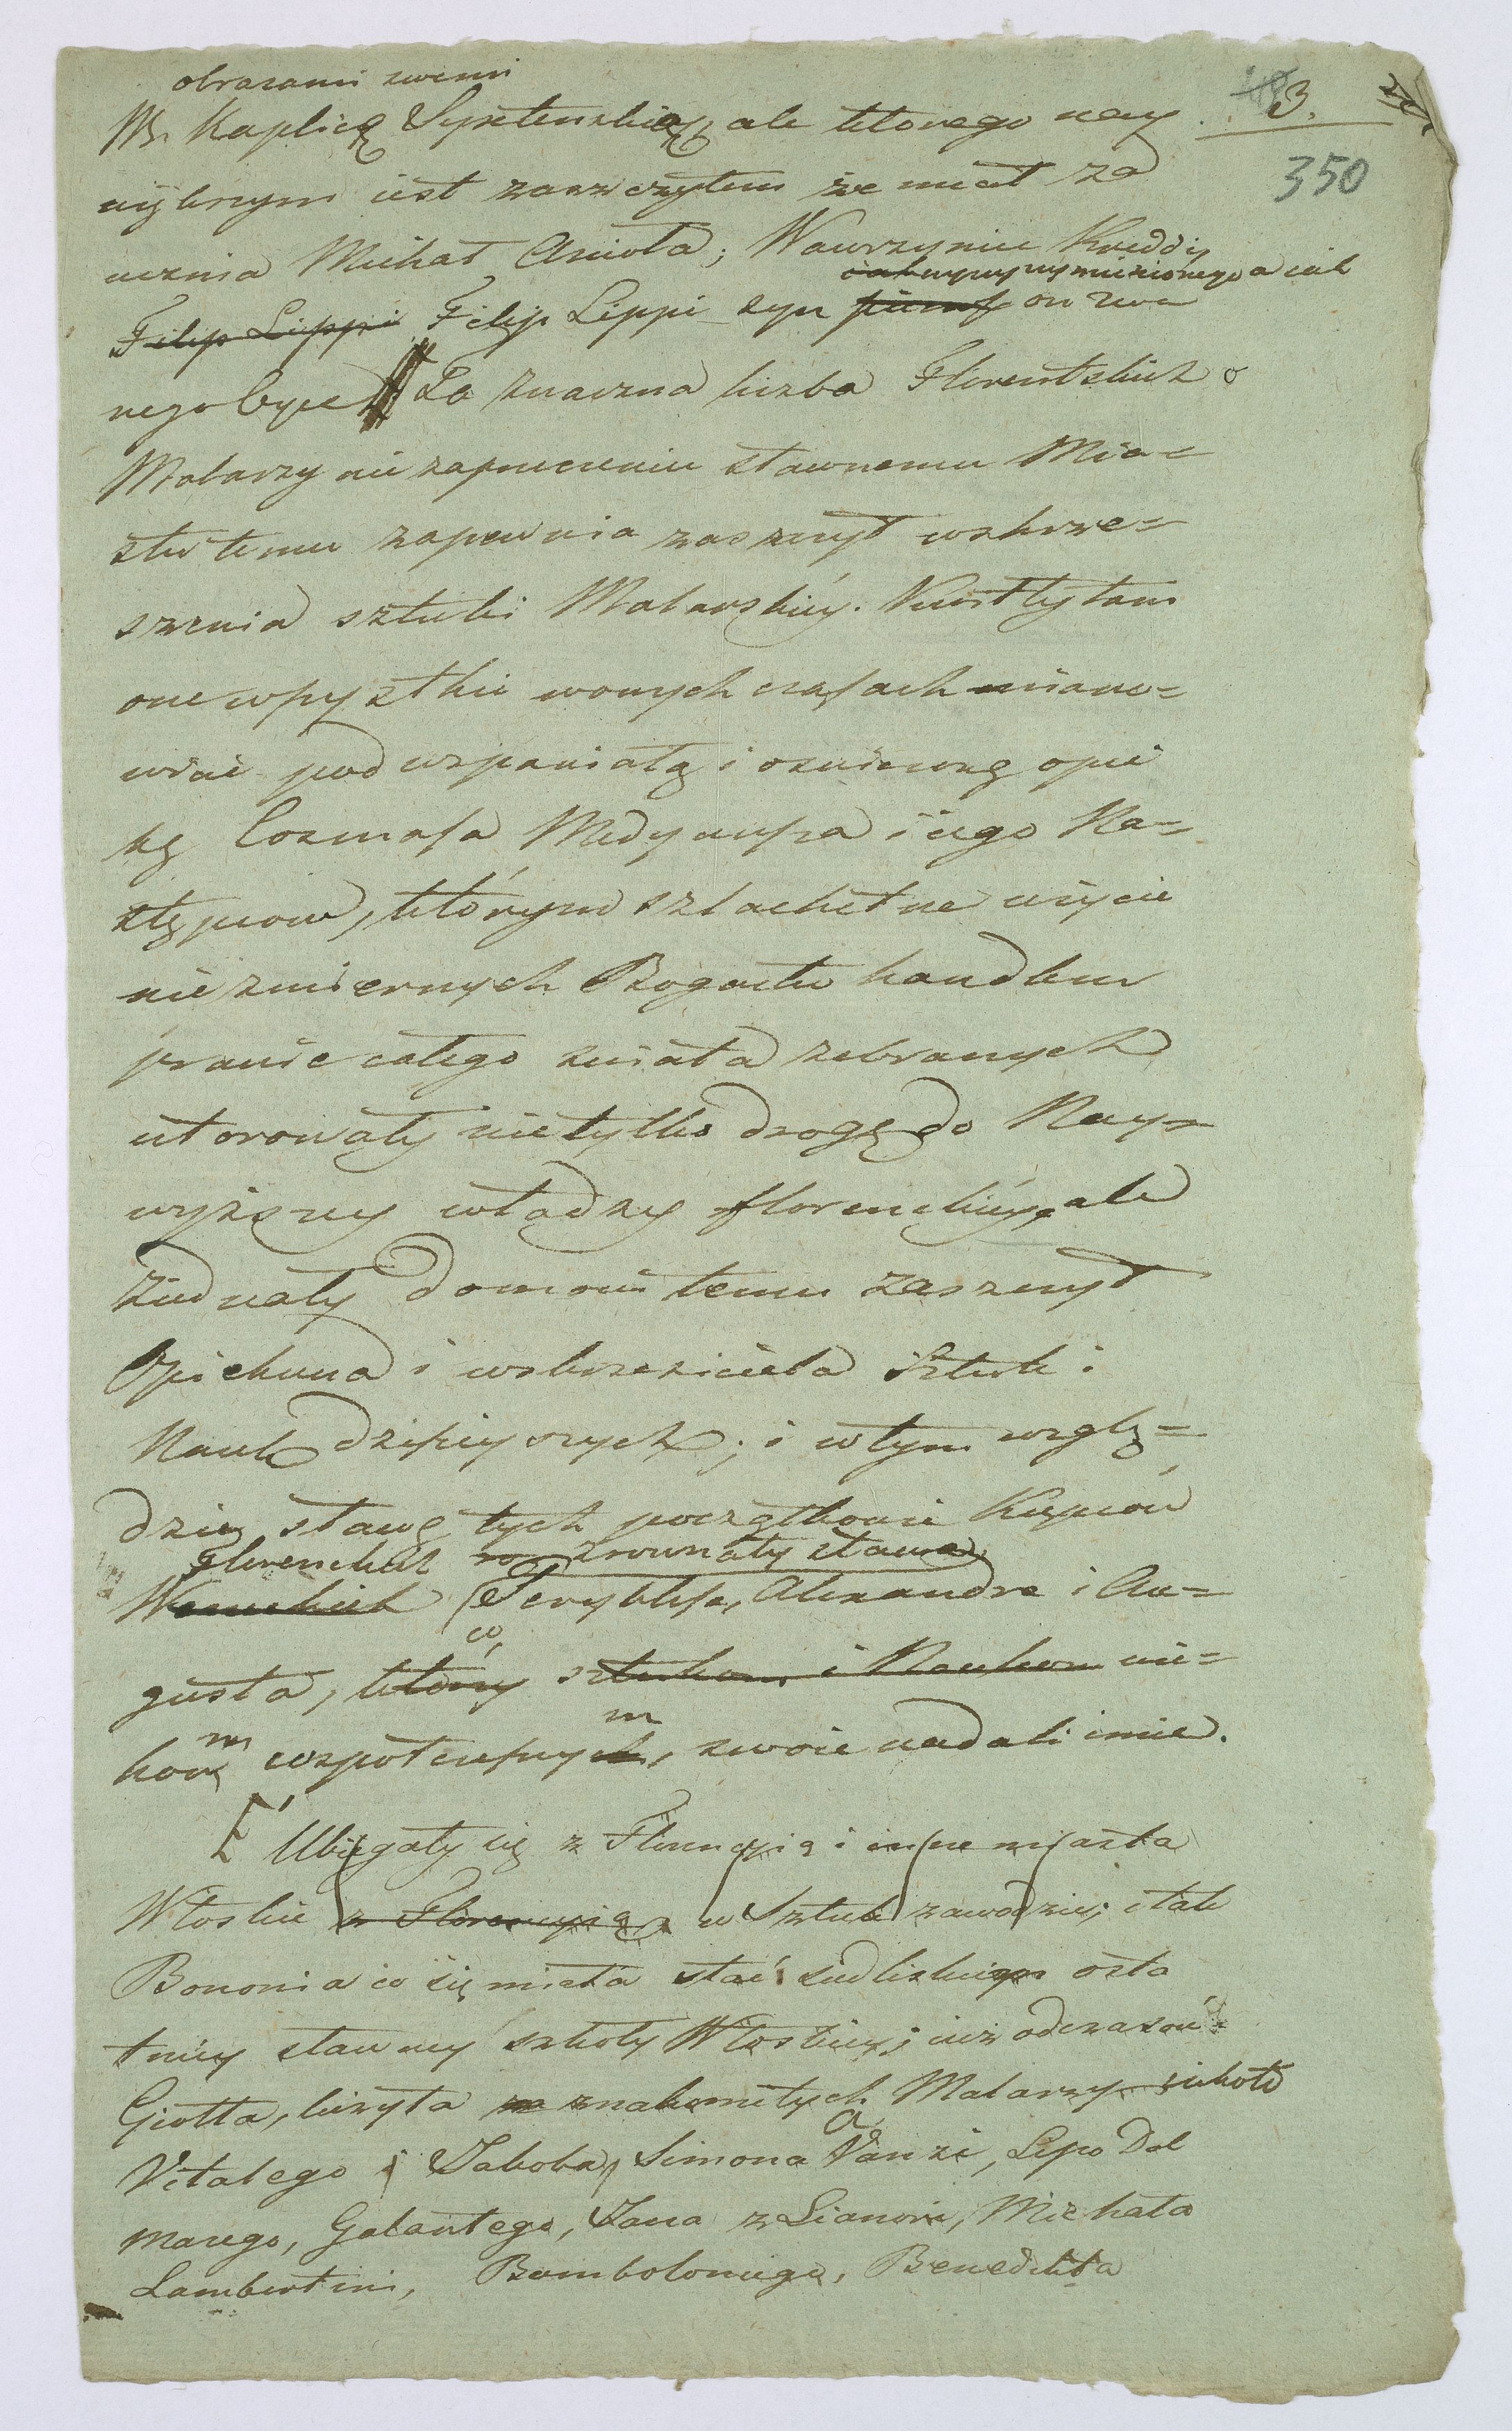 obrazami swemi
W. Kaplicę Syxtenską, ale którego nay 3.
więkrzym iest zaszczytem że miał za 350
ucznia Michał Anioła; Wawrzyniec Kreddi,
wymienionego a iak
Filip Lippi Filip Lippi syn on zwa
nego Ta znaczna liczba Florentskich
Malarzy nie zaprzeczenie sławnemu Mia=
stu temu zapewnia zaszczyt wskrze=
szenia sztuki Malarskiéy. Kwitły tam
one wszystkie w onych czasach miano=
wicie pod wspaniałą i oświeconą opie
ką Cosmasa Medyceusza i iego Na=
stępców, którym szlachetne użycie
niezmiernych Bogactw handlem
prawie całego świata zebranych
utorowały nietylko drogę do Nay=
wyższey władzy florenckiéy, ale
ziednały domowi temu zaszczyt
Opiekuna i wskrzesiciela Sztuk i
Nauk dzisieyszych; i w tym wzglę=
dzie sławę tych początkowie Kupców
Florenckich zrównały sławą
Weneckich Peryklesa, Alexandra i Au=
co
gusta, który sztukom i Naukom wie=
m m
kom współczesnych, swoie nadali imie.
Ubiegały się z Florencyią i insze miasta
Włoskie z Florencyią w Sztuk zawodzie; i tak
Bononia co się miała stać siedliskiem osta
tniéy sławney szkoły Włoskiey; iuż od czasów
Giotta, liczyła znakomitych Malarzy iakoto
a
Vitalego i Jakoba, Simona Vanzi, Lipo Dal
masego, Galantego, Jana z Lianori, Michała
Lambertini, Bomboloniego, Benedikta